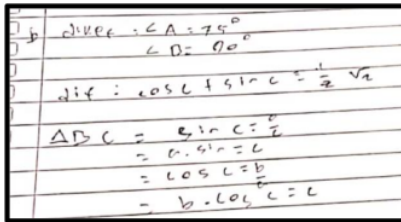 b diket : ∠A = 75°
∠B = 90°
dit : cos c + sin c = ½ √2
△BC = sin c =
= a. sin = c
= cos c = b
= b. cos c = c